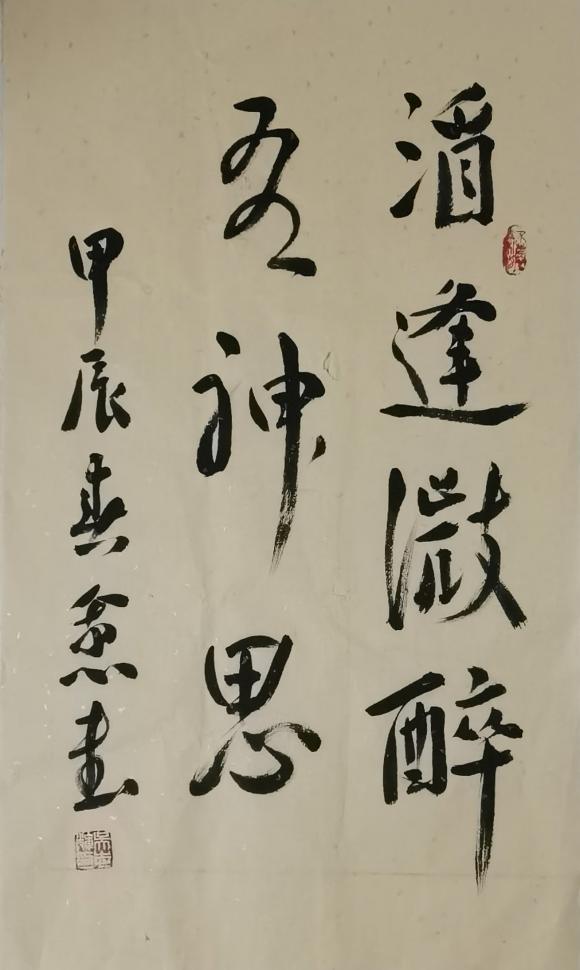 酒逢微醉
多神思
甲辰春书